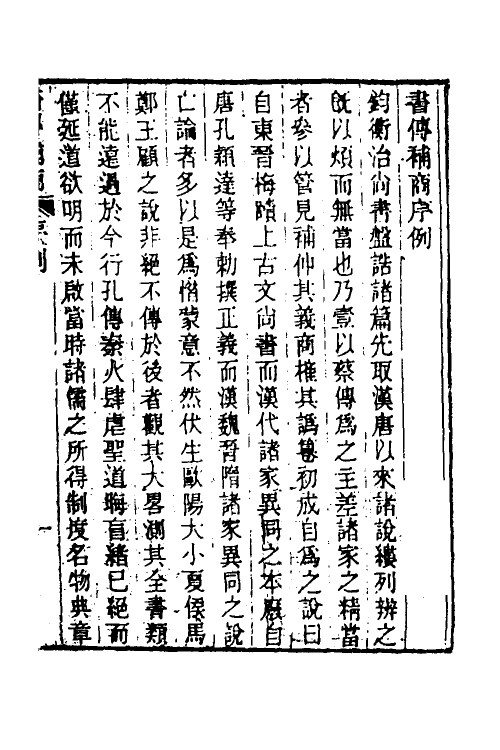 書傳補商序例
鈞衡治尚書盤誥諸篇先取漢唐以來諸說縷列辨之
旣以煩而無當也乃壹以蔡傳爲之主差諸家之精當
者參以管見補伸其義商榷其譌 初成自爲之說曰
自東晉梅賾上古文尚書而漢代諸家異同之本廢自
唐孔穎達等奉勅撰正義而漢魏晉隋諸家異同之說
亡論者多以是爲惜蒙意不然伏生歐陽大小夏侯馬
鄭王顧之說非絕不傳於後者觀其大畧測其全書類
不能遠過於今行孔傳秦火肆虐聖道晦盲緒已絕而
僅延道欲明而未啟當時諸儒之所得制度名物典章
序例
一